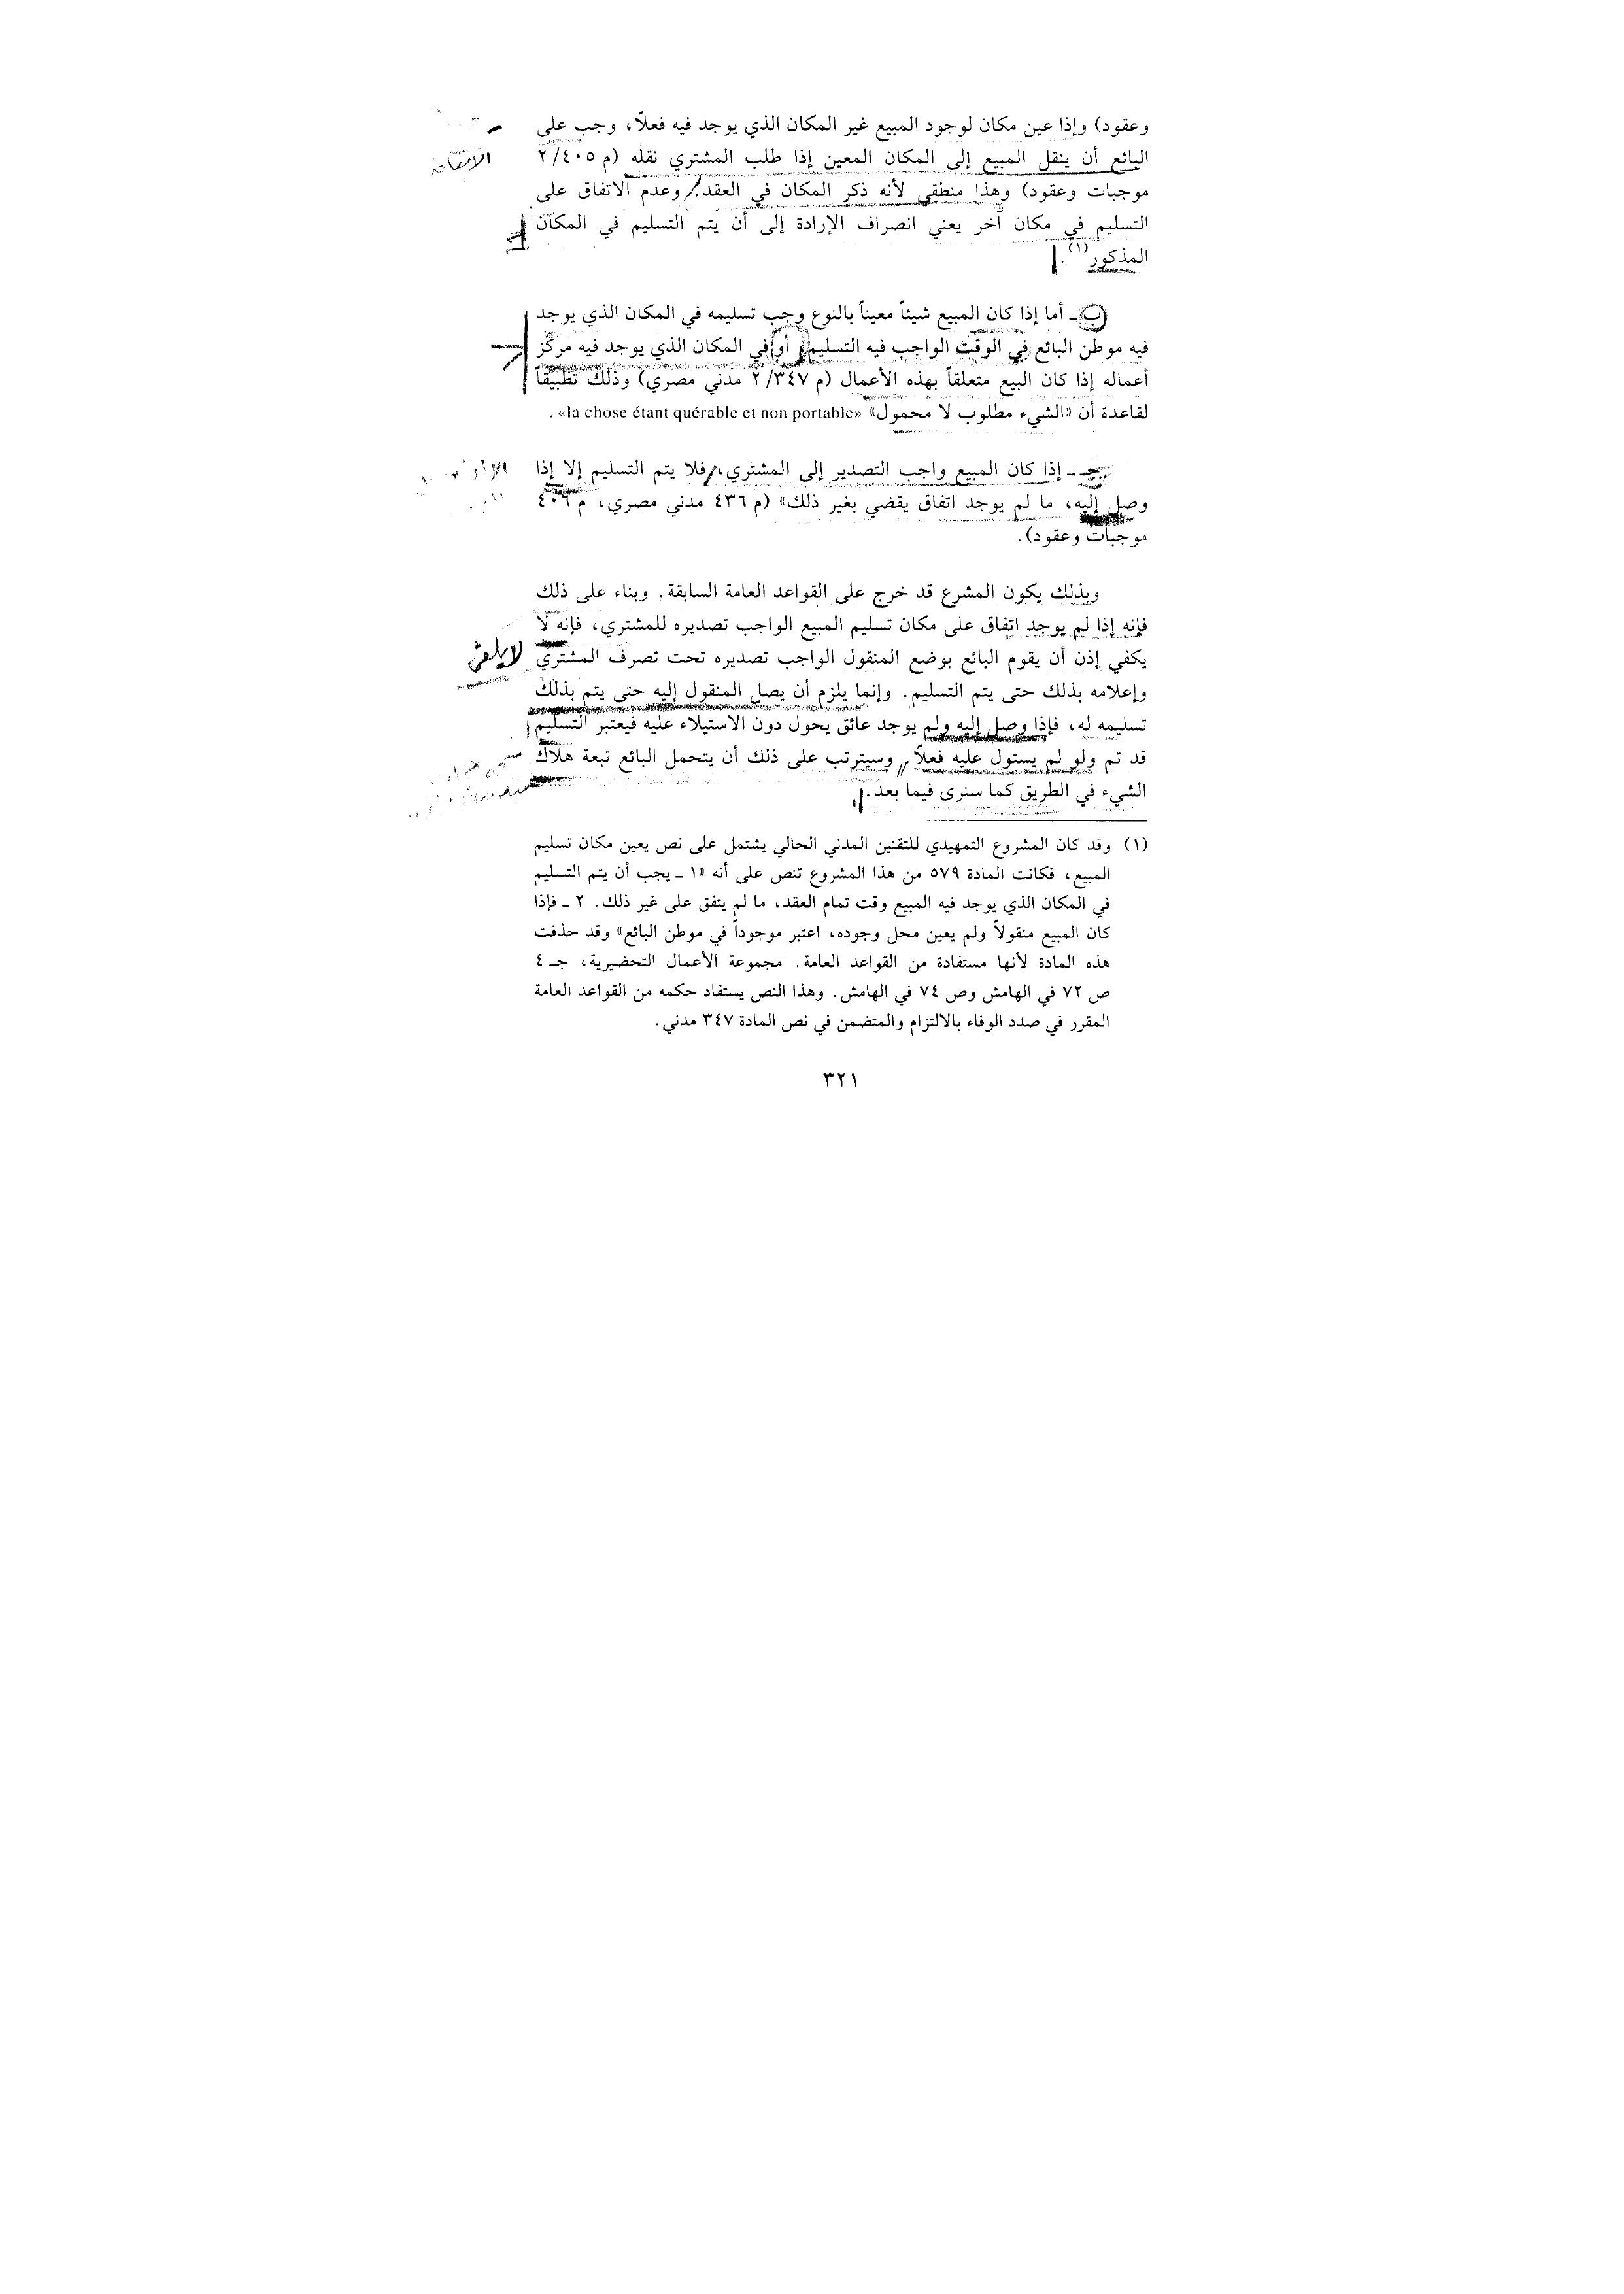 وعقود) وإذا عين مكان لوجود المبيع غير المكان الذي يوجد فيه فعلاً، وجب على
البائع أن ينقل المبيع إلى المكان المعين إذا طلب المشتري نقله (م ٤٠٥/ ٢
موجبات وعقود) وهذا منطقي لأنه ذكر المكان في العقد، وعدم الاتفاق على
التسليم في مكان آخر يعني انصراف الإرادة إلى أن يتم التسليم في المكان
المذكور(١).
ب ـ أما إذا كان المبيع شيئاً معيناً بالنوع وجب تسليمه في المكان الذي يوجد
فيه موطن البائع في الوقت الواجب فيه التسليم، أو في المكان الذي يوجد فيه مركز
أعماله إذا كان البيع متعلقاً بهذه الأعمال (م ٣٤٧/ ٢ مدني مصري) وذلك تطبيقاً
لقاعدة أن «الشيء مطلوب لا محمول» «la chose étant quérable et non portable».
جـ ـ إذا كان المبيع واجب التصدير إلى المشتري، فلا يتم التسليم إلا إذا
وصل إليه، ما لم يوجد اتفاق يقضي بغير ذلك» (م ٤٣٦ مدني مصري، م ٤٠٦
موجبات وعقود).
وبذلك يكون المشرع قد خرج على القواعد العامة السابقة. وبناء على ذلك
فإنه إذا لم يوجد اتفاق على مكان تسليم المبيع الواجب تصديره للمشتري، فإنه لا
يكفي إذن أن يقوم البائع بوضع المنقول الواجب تصديره تحت تصرف المشتري
وإعلامه بذلك حتى يتم التسليم. وإنما يلزم أن يصل المنقول إليه حتى يتم بذلك
تسليمه له، فإذا وصل إليه ولم يوجد عائق يحول دون الاستيلاء عليه فيعتبر التسليم
قد تم ولو لم يستول عليه فعلاً، وسيترتب على ذلك أن يتحمل البائع تبعة هلاك
الشيء في الطريق كما سنرى فيما بعد.
(١) وقد كان المشروع التمهيدي للتقنين المدني الحالي يشتمل على نص يعين مكان تسليم
المبيع، فكانت المادة ٥٧٩ من هذا المشروع تنص على أنه «١ ـ يجب أن يتم التسليم
في المكان الذي يوجد فيه المبيع وقت تمام العقد، ما لم يتفق على غير ذلك. ٢ ـ فإذا
كان المبيع منقولاً ولم يعين محل وجوده، اعتبر موجوداً في موطن البائع» وقد حذفت
هذه المادة لأنها مستفادة من القواعد العامة. مجموعة الأعمال التحضيرية، جـ ٤
ص ٧٢ في الهامش وص ٧٤ في الهامش. وهذا النص يستفاد حكمه من القواعد العامة
المقرر في صدد الوفاء بالالتزام والمتضمن في نص المادة ٣٤٧ مدني.
٣٢١